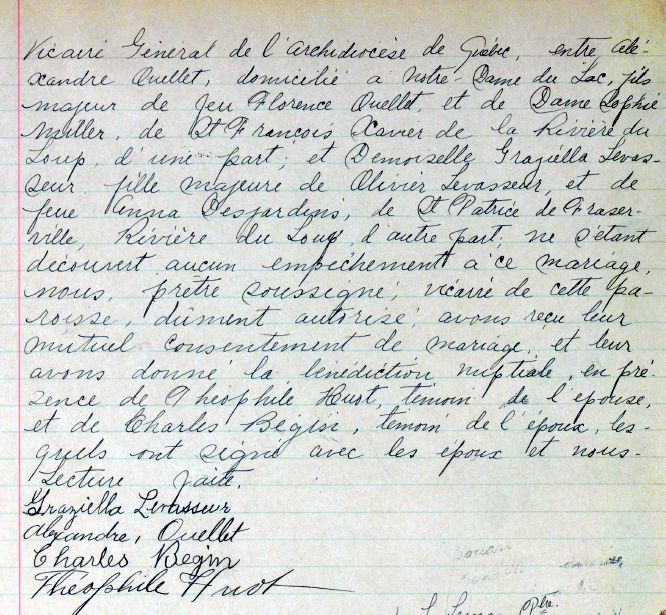 Vicaire Général de l'Archidiocèse de Québec, entre Alé-
xandre Ouellet, domicilié à Notre-Dame du Lac, fils
majeur de feu Florence Ouellet, et de Dame Sophie
Miller, de St François Xavier de la Rivière du
Loup, d'une part; et Demoiselle Graziella Levas-
seur, fille majeure de Olivier Levasseur, et de
feue Anna Desjardins, de St Patrice de Fraser-
ville, Rivière du Loup, d'autre part, ne s'étant
découvert aucun empêchement à ce mariage,
nous, prêtre soussigné, vicaire de cette pa-
roisse, dûment autorisé, avons reçu leur
mutuel consentement de mariage, et leur
avons donné la bénédiction nuptiale, en pré-
sence de Théophile Huot, témoin de l'épouse,
et de Charles Bégin, témoin de l'époux, les-
quels ont signé avec les époux et nous.
Lecture faite.
Graziella Levasseur
Alexandre, Ouellet
Charles Begin
Théophile Huot
Ptre.